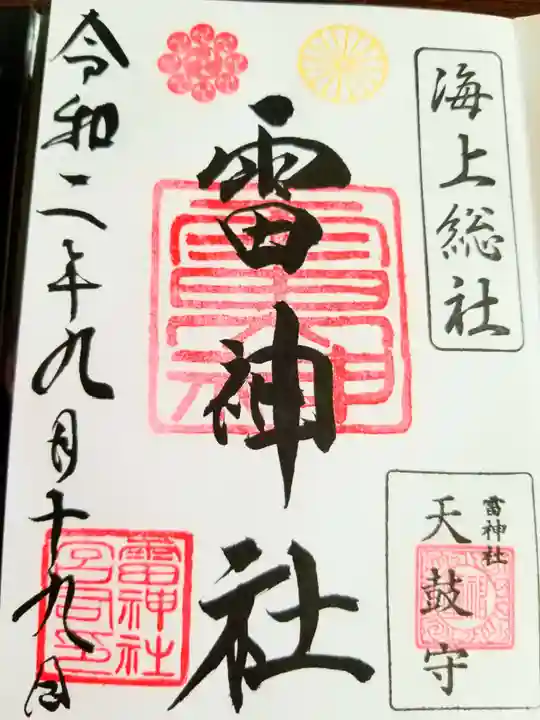 海上総社
雷神社
天鼓守
雷神社
令和二年九月十九日
雷神社
宮司印